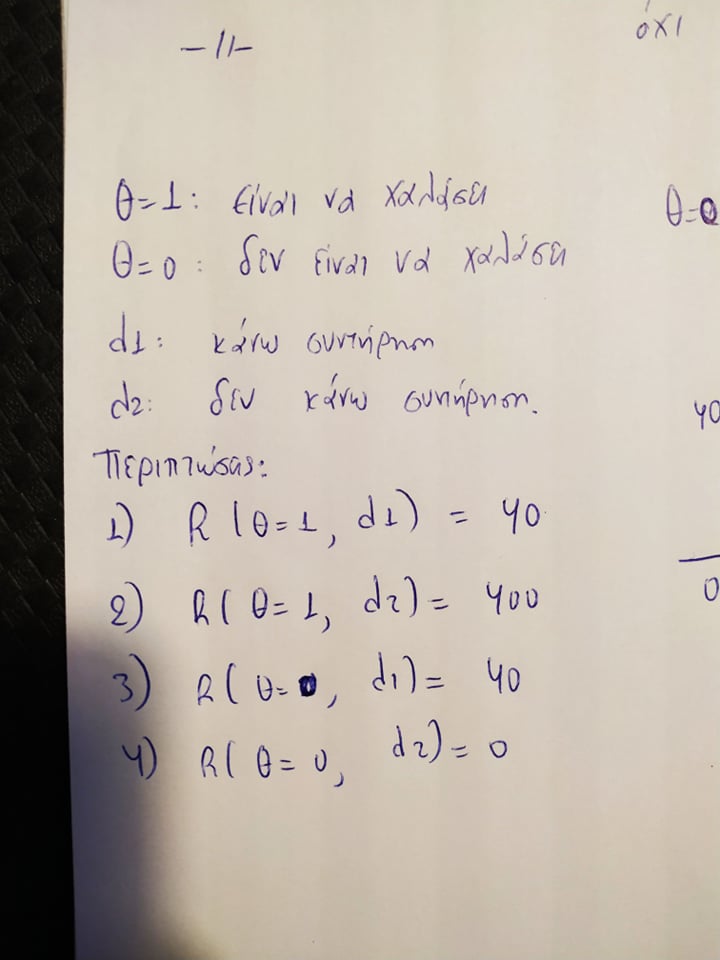 -11-
όχι
θ=1: είναι να χαλάσει
θ=0: δεν είναι να χαλάσει
θ=0
d1: κάνω συντήρηση
d2: δεν κάνω συντήρηση.
40
Περιπτώσεις:
1) R(θ=1, d1) = 40
2) R(θ=1, d2) = 400
0
3) R(θ=0, d1) = 40
4) R(θ=0, d2) = 0